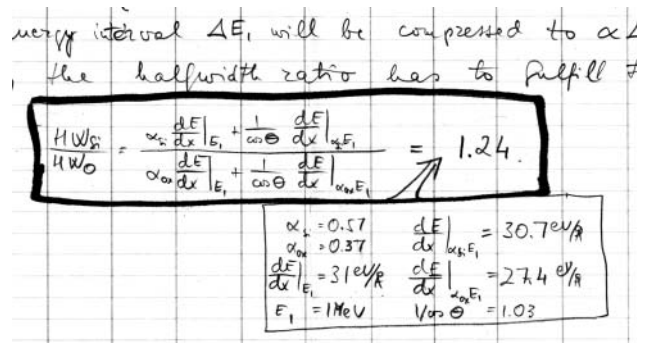 energy interval ΔE₁ will be compressed to α Δ
the halfwidth ratio has to fulfill
HW_Si / HW_O = (α_Si dE/dx|_E₁ + 1/cosΘ dE/dx|_α_Si E₁) / (α_ox dE/dx|_E₁ + 1/cosΘ dE/dx|_α_ox E₁) = 1.24.
α_Si = 0.57 dE/dx|_α_Si E₁ = 30.7 eV/Å
α_ox = 0.37
dE/dx|_E₁ = 31 eV/Å dE/dx|_α_ox E₁ = 27.4 eV/Å
E₁ = 1MeV 1/cos Θ = 1.03